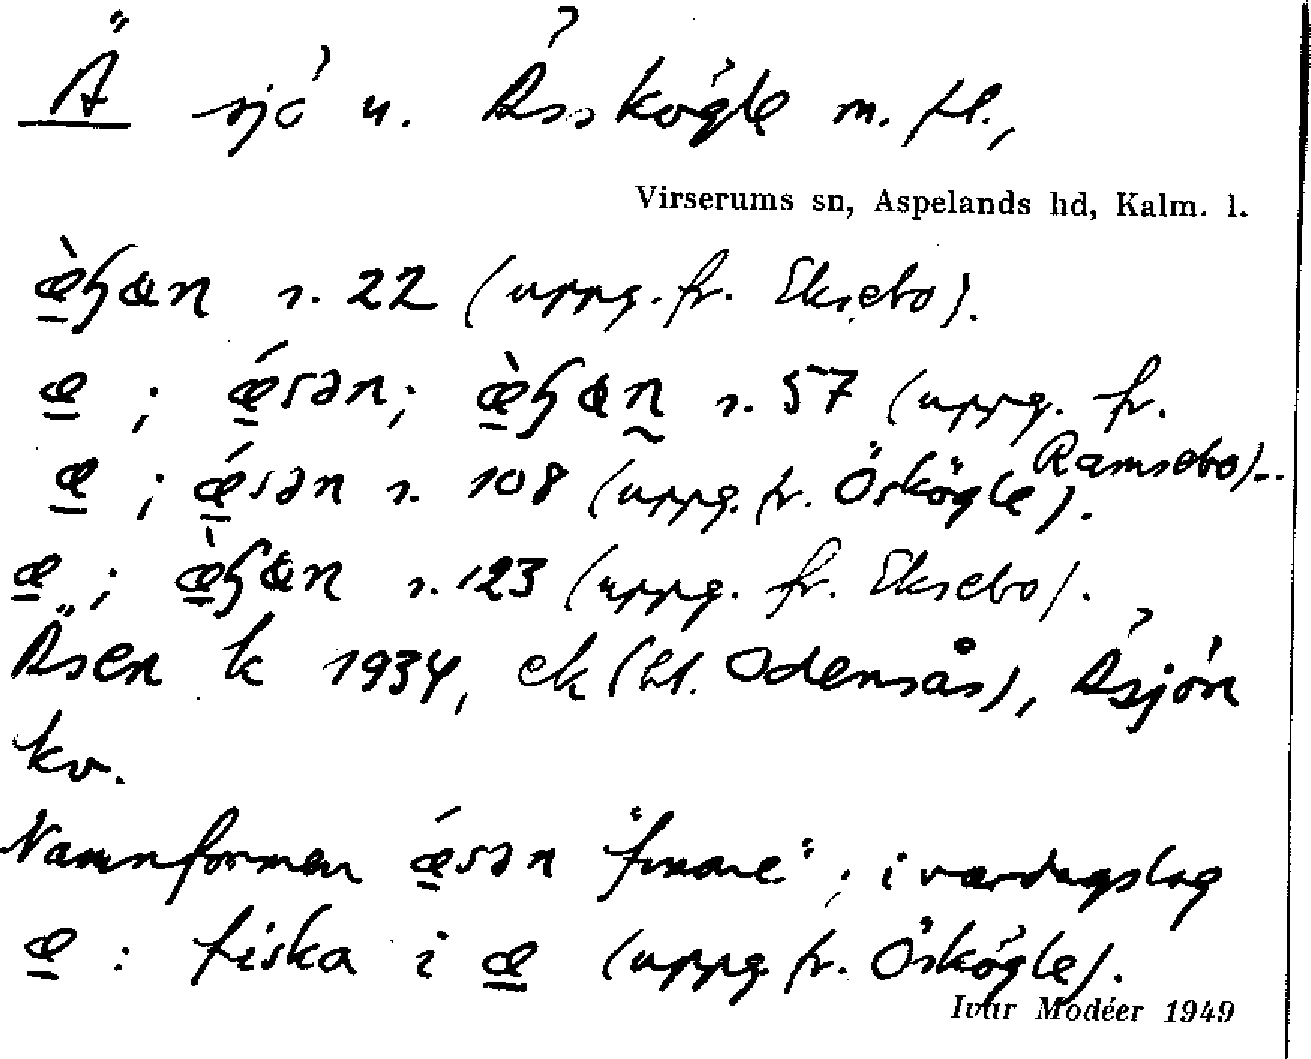 Ä sjö u. Ässkögle m. fl.,
Virserums sn, Aspelands hd, Kalm. l.
æ̀ɧan s. 22 (uppg. fr. Eksebo).
æ ; ǽsən; æ̀ɧan s. 57 (uppg. fr. Ramsebo)..
æ ; ǽsən s. 108 (uppg. fr. Öskögle).
æ ; æ̀ɧan s. 123 (uppg. fr. Eksebo).
Äsen k 1934, ek (bl. Odensås), Äsjön
kv.
Namnformen ǽsən "finare"; i vardagslag
æ : fiska i æ (uppg. fr. Öskögle).
Ivar Modéer 1949